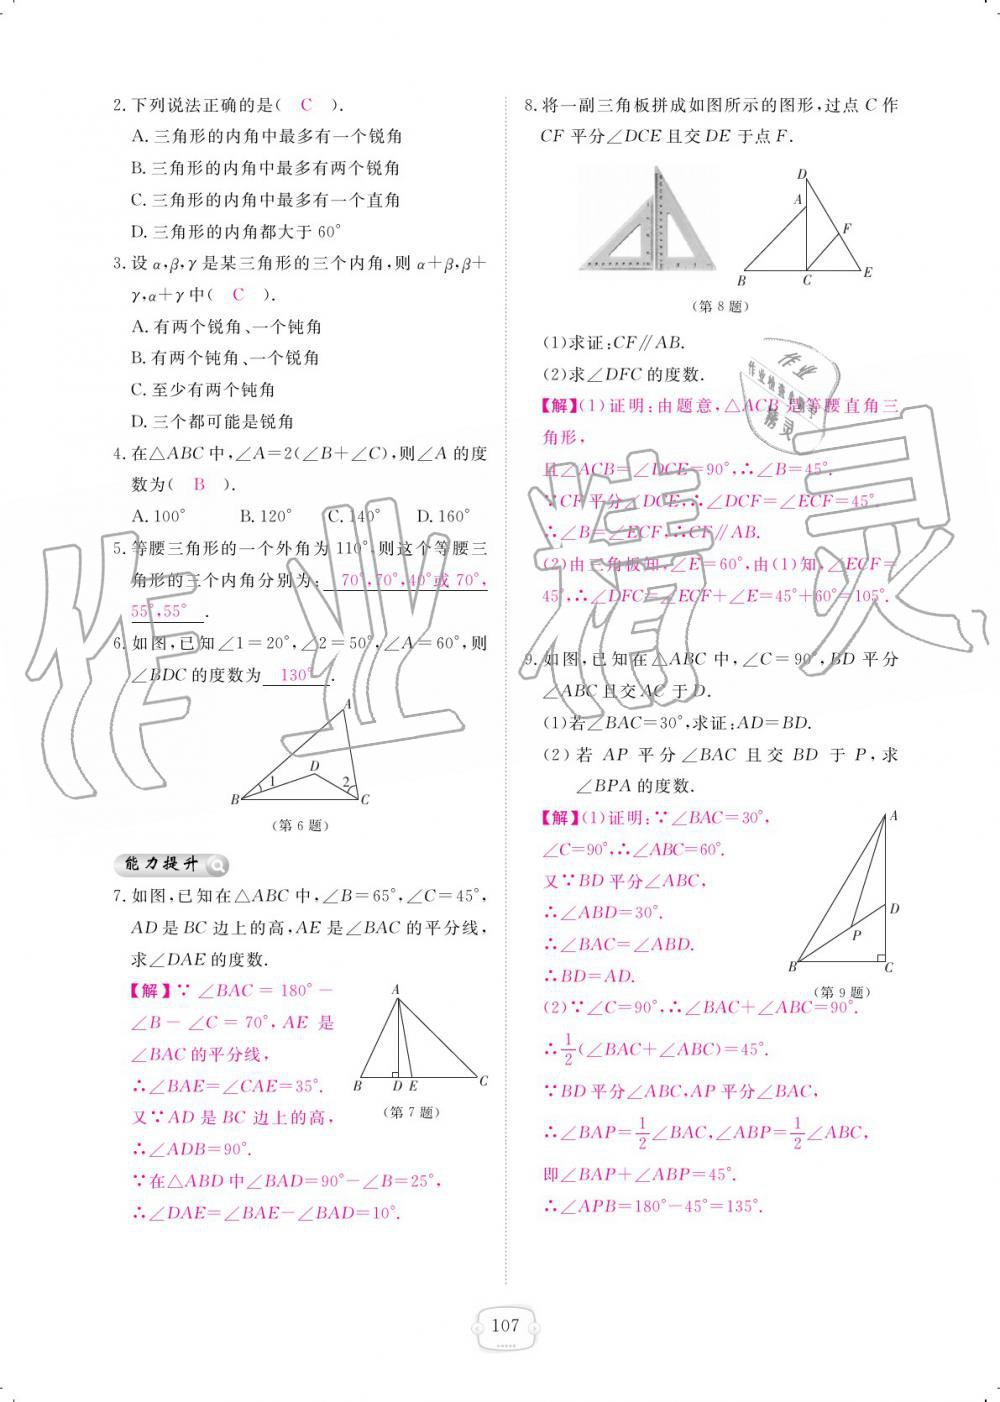 2.下列说法正确的是( C ).
A.三角形的内角中最多有一个锐角
B.三角形的内角中最多有两个锐角
C.三角形的内角中最多有一个直角
D.三角形的内角都大于60°
3.设α,β,γ是某三角形的三个内角,则α+β,β+
γ,α+γ中( C ).
A.有两个锐角、一个钝角
B.有两个钝角、一个锐角
C.至少有两个钝角
D.三个都可能是锐角
4.在△ABC中,∠A=2(∠B+∠C),则∠A的度
数为( B ).
A.100° B.120° C.140° D.160°
5.等腰三角形的一个外角为110°,则这个等腰三
角形的三个内角分别为: 70°,70°,40°或70°,
55°,55° .
6.如图,已知∠1=20°,∠2=50°,∠A=60°,则
∠BDC的度数为 130° .
A
D
1
2
B
C
(第6题)
能力提升
7.如图,已知在△ABC中,∠B=65°,∠C=45°,
AD是BC边上的高,AE是∠BAC的平分线,
求∠DAE的度数.
【解】∵∠BAC=180°-
∠B-∠C=70°,AE是
∠BAC的平分线,
∴∠BAE=∠CAE=35°.
又∵AD是BC边上的高,
∴∠ADB=90°.
∵在△ABD中∠BAD=90°-∠B=25°,
∴∠DAE=∠BAE-∠BAD=10°.
A
B
D
E
C
(第7题)
8.将一副三角板拼成如图所示的图形,过点C作
CF平分∠DCE且交DE于点F.
D
A
F
B
C
E
(第8题)
(1)求证:CF∥AB.
(2)求∠DFC的度数.
【解】(1)证明:由题意,△ACB是等腰直角三
角形,
且∠ACB=∠DCE=90°,∴∠B=45°.
∵CF平分∠DCE,∴∠DCF=∠ECF=45°
∴∠B=∠ECF,∴CF∥AB.
(2)由三角板知,∠E=60°,由(1)知,∠ECF=
45°,∴∠DFC=∠ECF+∠E=45°+60°=105°.
9.如图,已知在△ABC中,∠C=90°,BD平分
∠ABC且交AC于D.
(1)若∠BAC=30°,求证:AD=BD.
(2)若AP平分∠BAC且交BD于P,求
∠BPA的度数.
【解】(1)证明:∵∠BAC=30°,
∠C=90°,∴∠ABC=60°.
又∵BD平分∠ABC,
∴∠ABD=30°.
∴∠BAC=∠ABD.
∴BD=AD.
(2)∵∠C=90°,∴∠BAC+∠ABC=90°.
∴1/2(∠BAC+∠ABC)=45°.
∵BD平分∠ABC,AP平分∠BAC,
∴∠BAP=1/2∠BAC,∠ABP=1/2∠ABC,
即∠BAP+∠ABP=45°.
∴∠APB=180°-45°=135°.
A
D
P
B
C
(第9题)
107
作业精灵
作业
作业检查
精灵